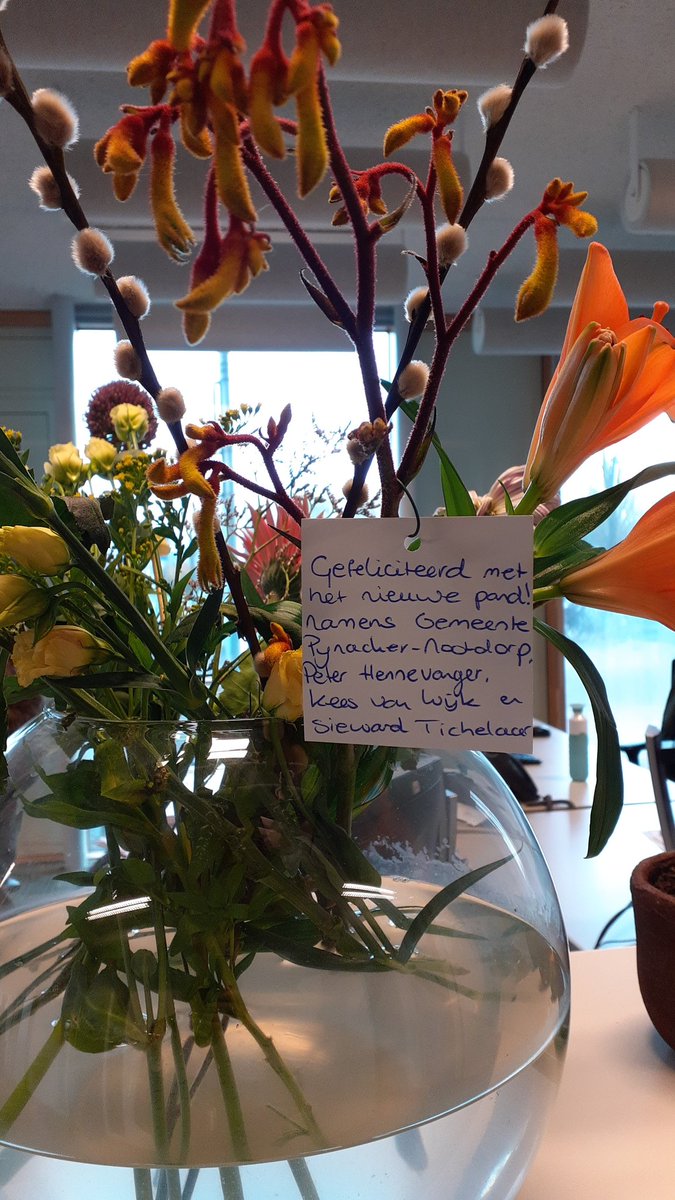 Gefeliciteerd met
het nieuwe pand!
Namens Gemeente
Pynacker-Nootdorp,
Peter Hennevanger,
Kees van Wijk en
Sieward Tichelaar